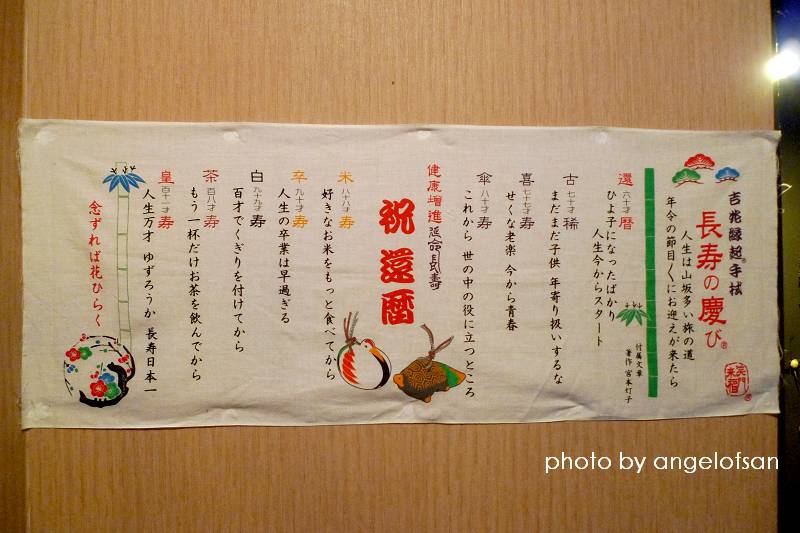 吉兆縁起手拭
長寿の慶び
人生は山坂多い旅の道
年令の節目〱にお迎えが来たら
付属文章
著作 宮本灯子
笑門来福
還暦
六十才
ひよ子になったばかり
人生今からスタート
古稀
七十才
まだまだ子供 年寄り扱いするな
喜寿
七十七才
せくな老楽 今から青春
傘寿
八十才
これから 世の中の役に立つところ
健康増進延命長寿
祝還暦
米寿
八十八才
好きなお米をもっと食べてから
卒寿
九十才
人生の卒業は早過ぎる
白寿
九十九才
百才でくぎりを付けてから
茶寿
百八才
もう一杯だけお茶を飲んでから
皇寿
百十一才
人生万才 ゆずろうか 長寿日本一
念ずれば花ひらく
photo by angelofsan